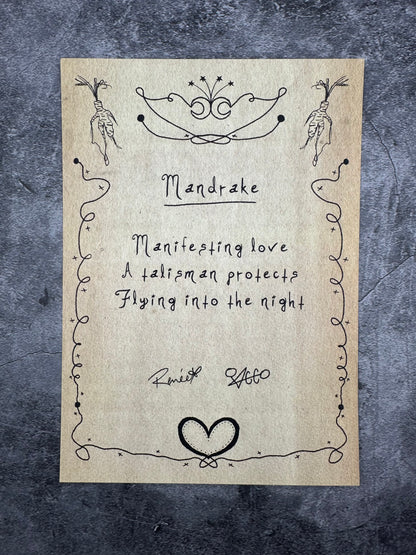 Mandrake
Manifesting love
A talisman protects
Flying into the night